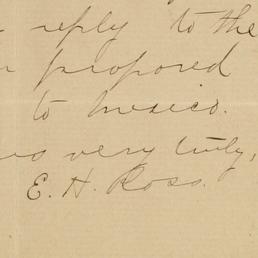 reply to the
proposed
to Mexico.
very truly,
E. H. Ross.